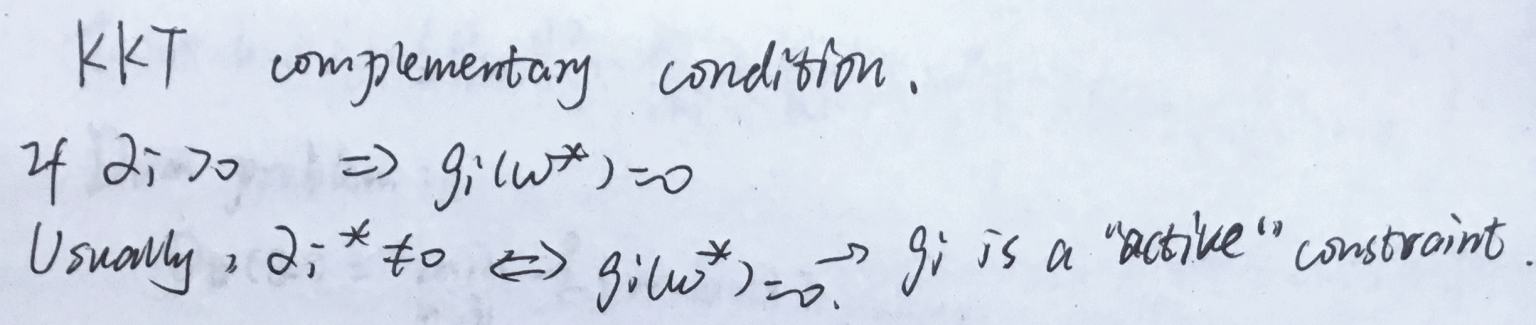 KKT complementary condition.
If αi>0 => gi(w*)=0
Usually, αi*≠0 <=> gi(w*)=0. → gi is a "active" constraint.